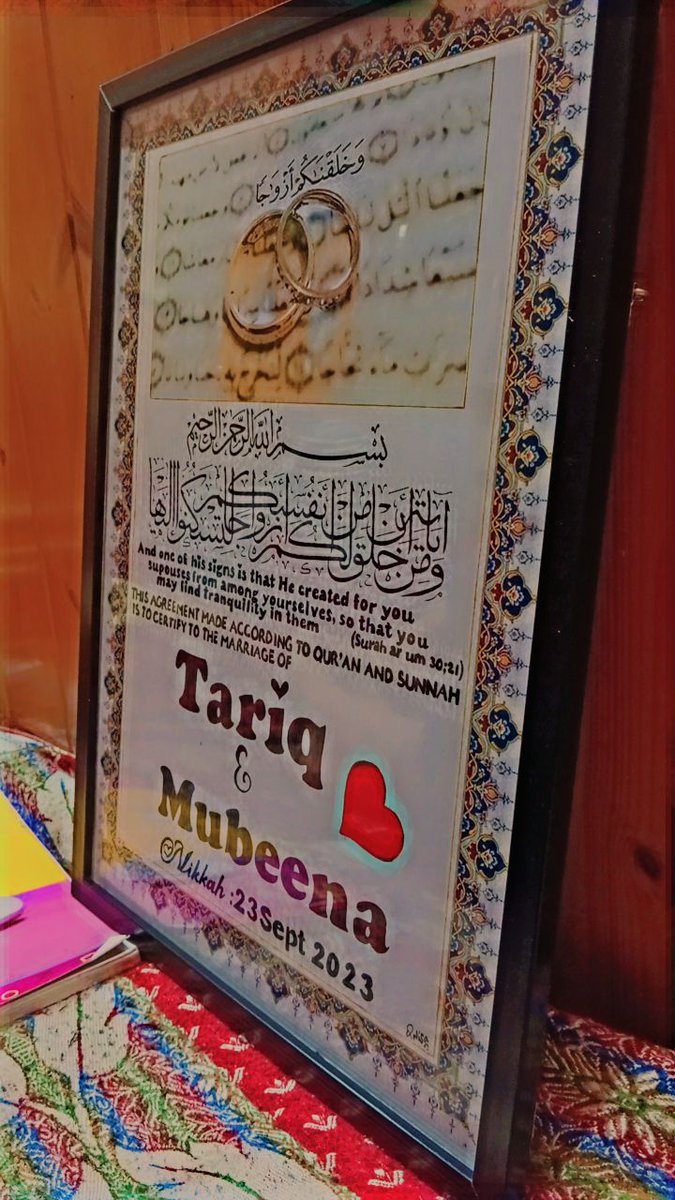 وَخَلَقْنَكُمْ أَزْوَجًا
بسم الله الرحمن الرحيم
ومن آياته أن خلق لكم من أنفسكم أزواجا لتسكنوا إليها
And one of his signs is that He created for you
supouses from among yourselves, so that you
may find tranquility in them (Surah ar um 30;21)
THIS AGREEMENT MADE ACCORDING TO QUR'AN AND SUNNAH
IS TO CERTIFY TO THE MARRIAGE OF
Tariq
&
Mubeena
Nikkah :23 Sept 2023